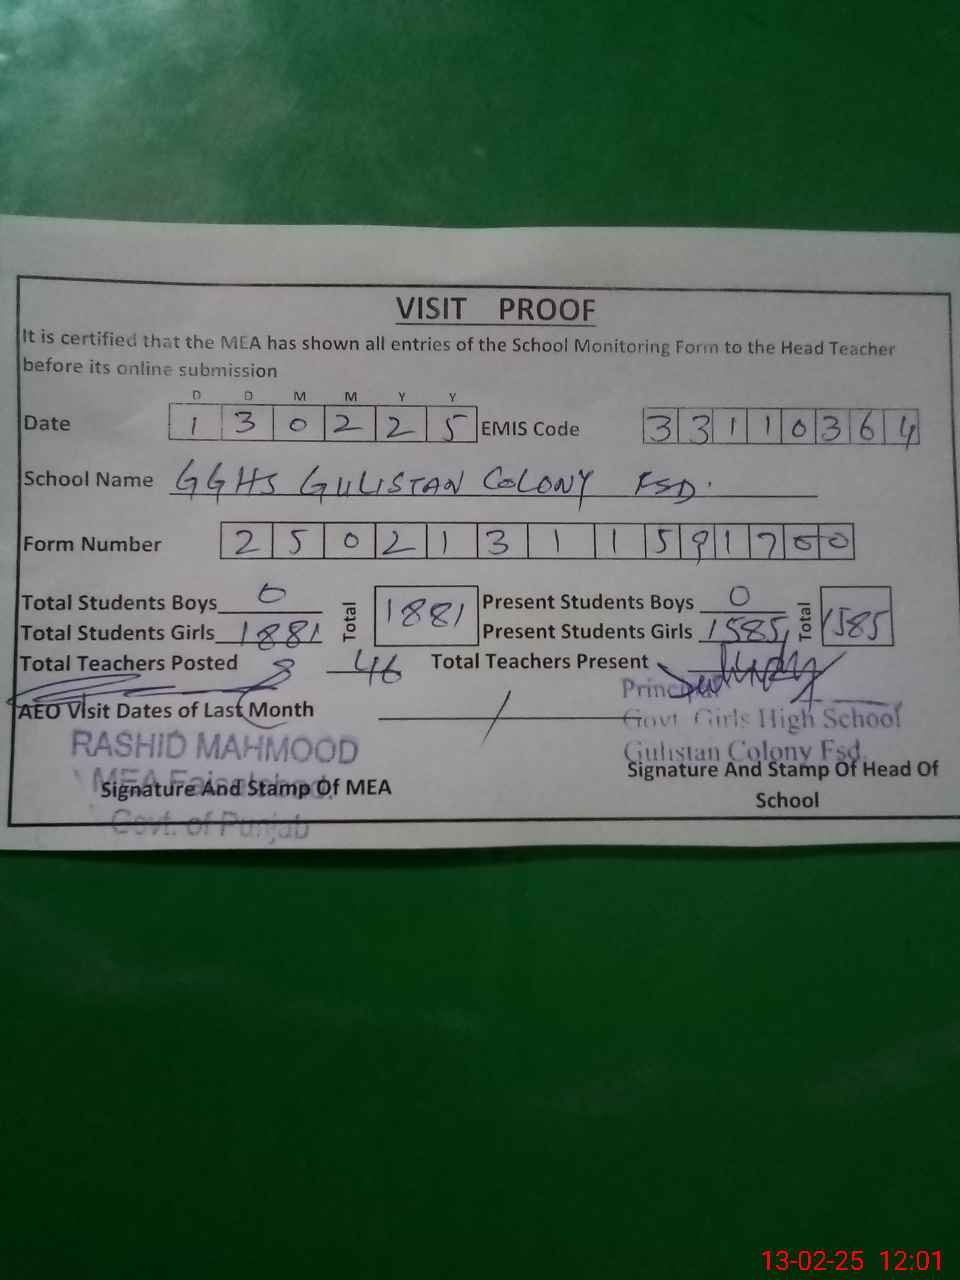 VISIT PROOF
It is certified that the MEA has shown all entries of the School Monitoring Form to the Head Teacher
before its online submission
D D M M Y Y
Date 1 3 0 2 2 5 EMIS Code 3 3 1 1 0 3 6 4
School Name GGHS GULISTAN COLONY FSD.
Form Number 2 5 0 2 1 3 1 1 5 9 1 7 0 0
Total Students Boys 0 Total 1881 Present Students Boys 0 Total 1585
Total Students Girls 1881 Present Students Girls 1585
Total Teachers Posted 46 Total Teachers Present
Principal
AEO Visit Dates of Last Month
Govt. Girls High School
RASHID MAHMOOD
Gulistan Colony Fsd.
MEA Faisalabad
Signature And Stamp Of MEA
Signature And Stamp Of Head Of
School
Govt. of Punjab
13-02-25 12:01